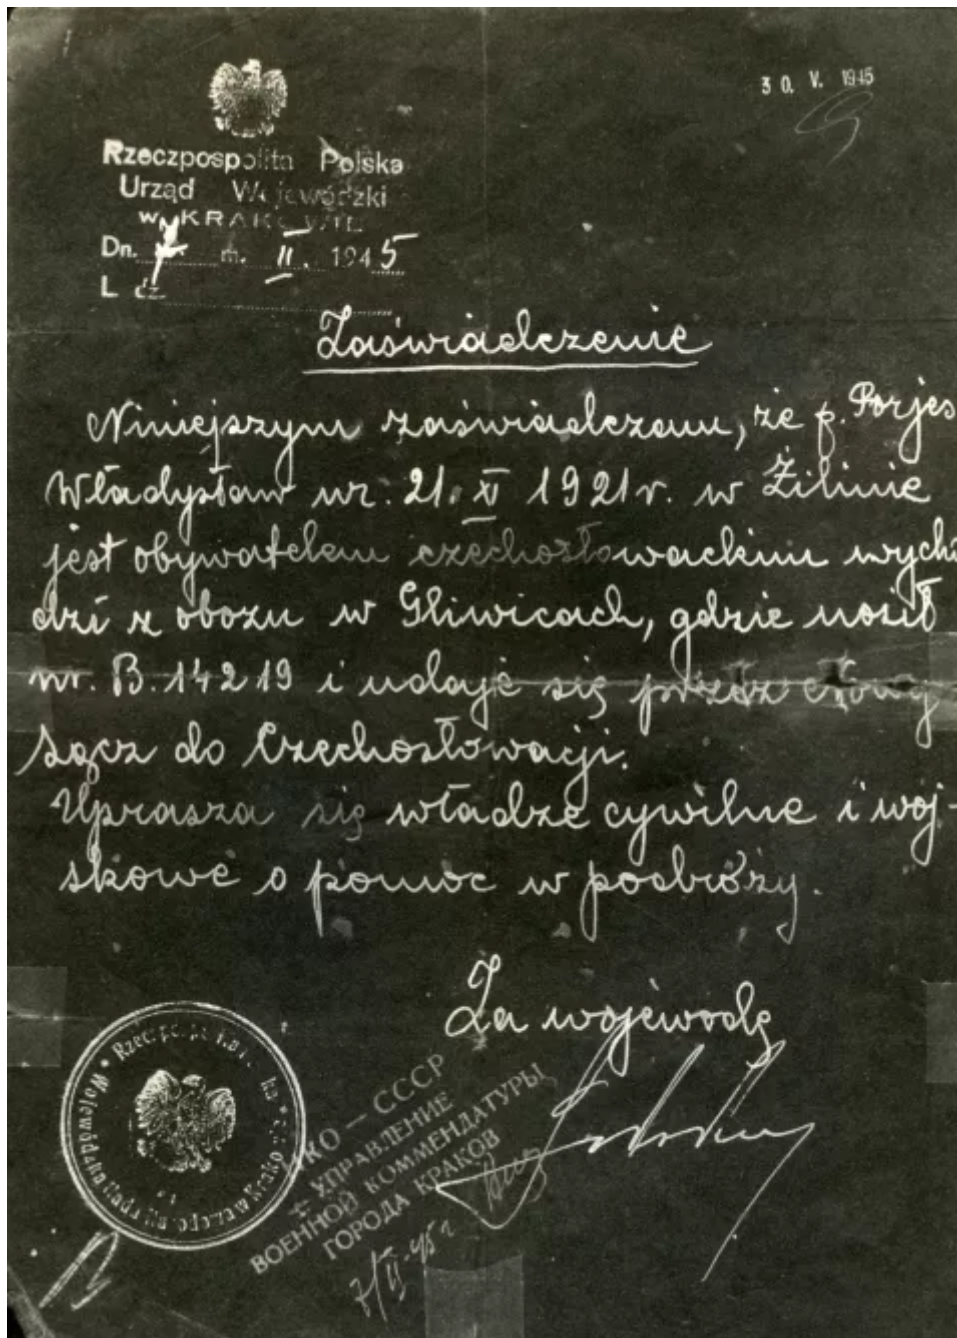 30. V. 1945
Rzeczpospolita Polska
Urząd Wojewódzki
w KRAKOWIE
Dn. m. II. 1945
L cz
Zaświadczenie
Niniejszym zaświadczam, że p. Porjes
Władysław ur. 21. XI 1921 r. w Żilinie
jest obywatelem czechosłowackim wycho
dzi z obozu w Gliwicach, gdzie nosił
nr. B. 14219 i udaje się przez Nowy
Sącz do Czechosłowacji.
Uprasza się władze cywilne i woj-
skowe o pomoc w podróży.
Za wojewodę
НКО — СССР
УПРАВЛЕНИЕ
ВОЕННОЙ КОММЕНДАТУРЫ
ГОРОДА КРАКОВ
7/II-45 г
Wojewódzka Rada Narodowa w Krako